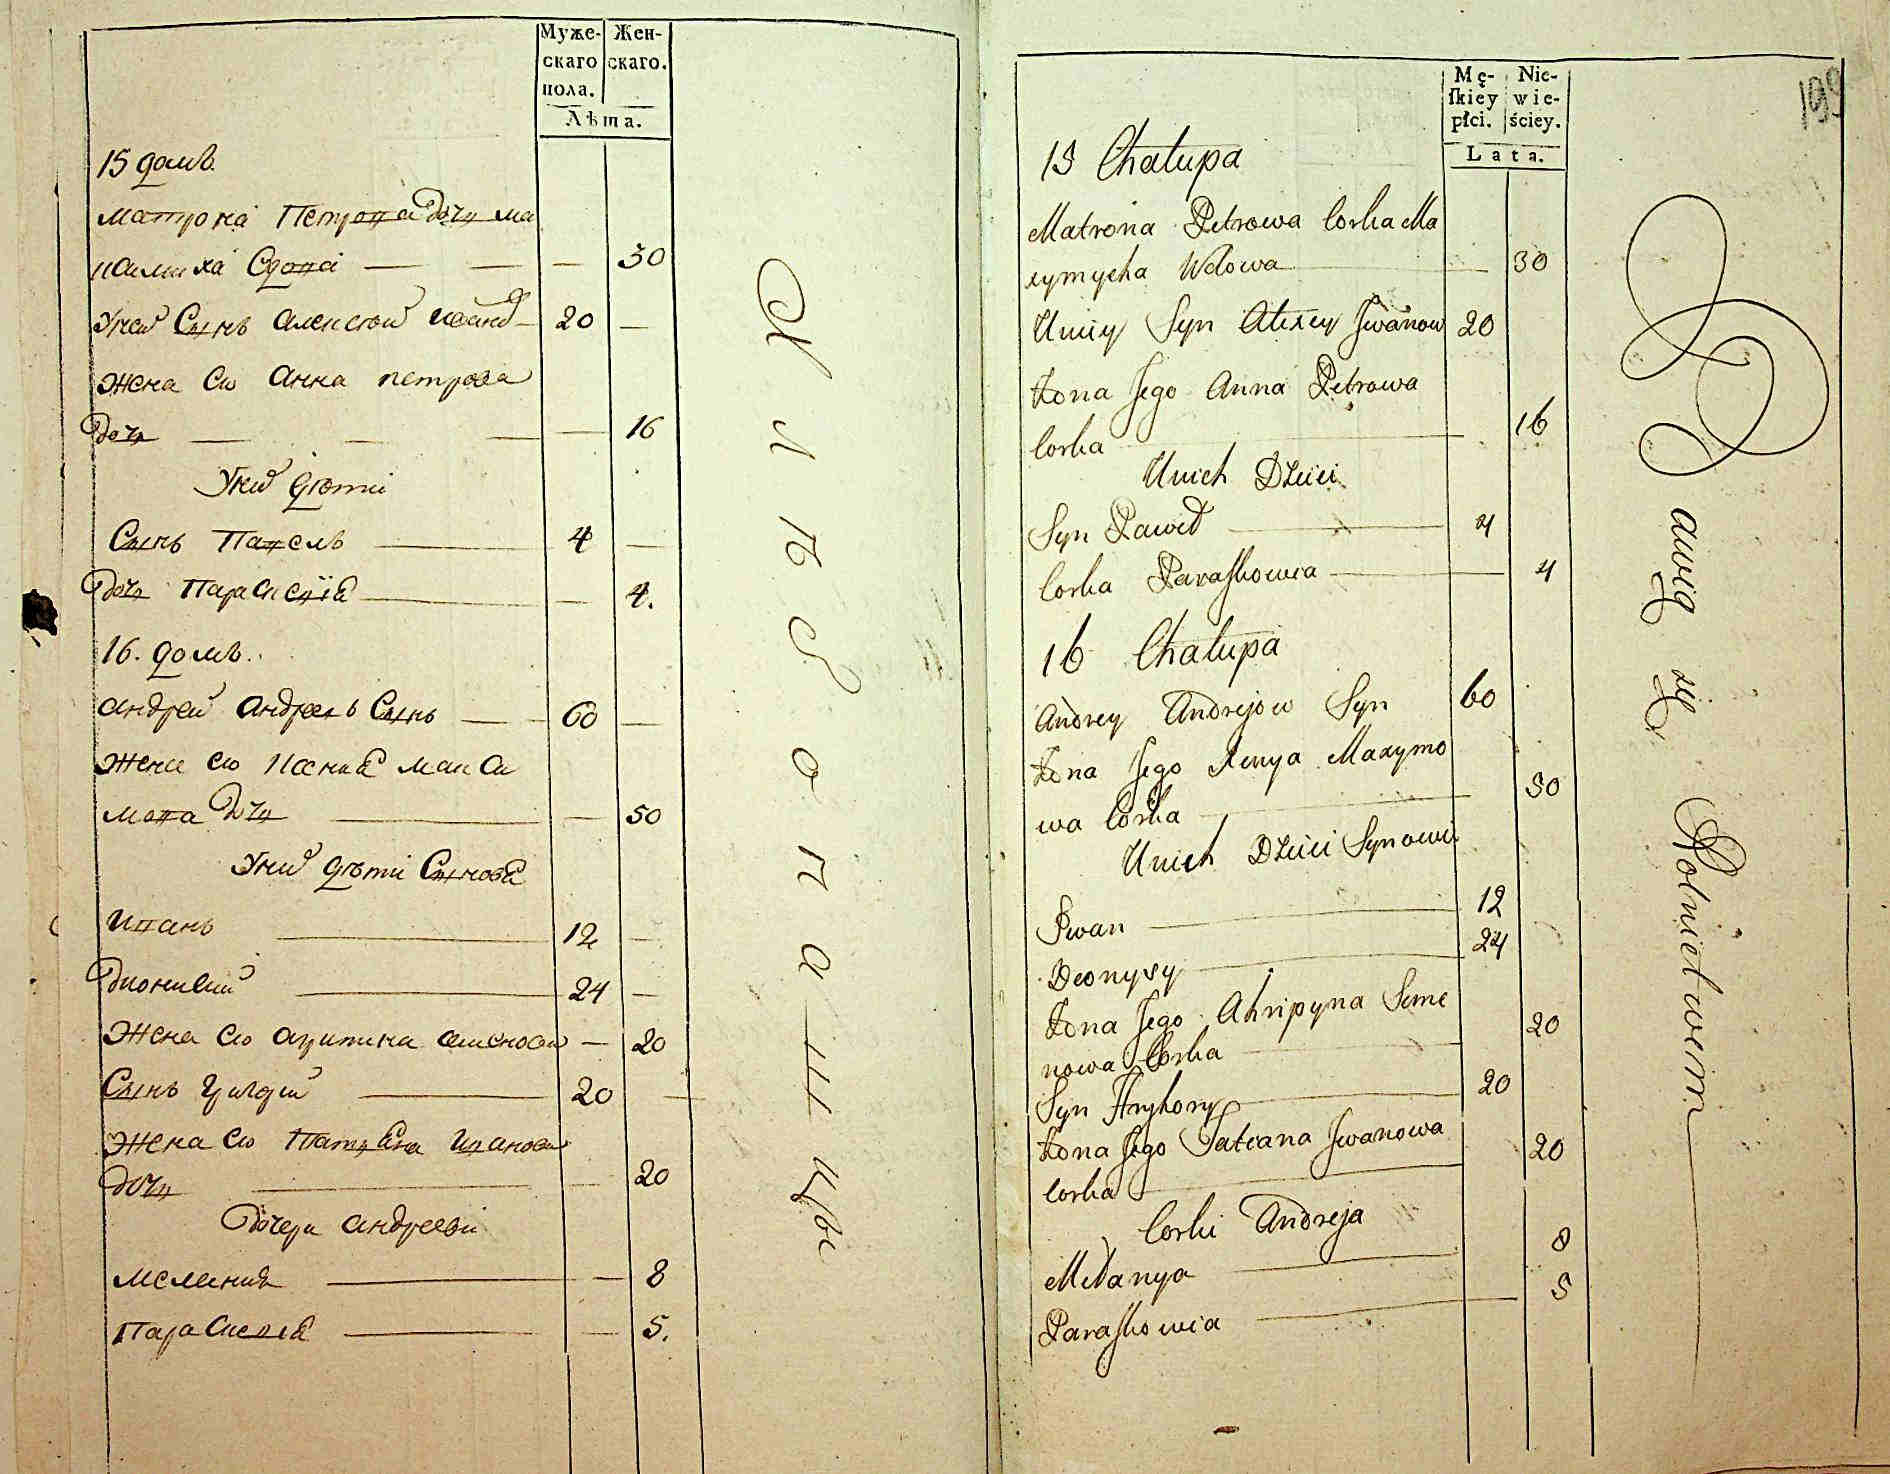 Муже- Жен-
скаго скаго.
пола.
Лѣта.
15 домъ.
Матрона Петрова дочь Ма
ксимиха вдова — — — 30
У неи Сынъ Алексѣй Иванов — 20 —
Жена ево Анна петрова
дочь — — — — 16
У нихъ дѣти
Сынъ Павелъ — 4 —
дочь Параскевія — — 4.
16. домъ.
Андрей Андреевъ Сынъ — 60 —
Жена ево Ксения Макси
мова дочь — — 50
У нихъ дѣти Сыновя
Иванъ — 12 —
Дионисий — 24 —
Жена ево Агрипина Семенова — 20
Сынъ — 20 —
Жена ево Татьяна Иванова
дочь — — 20
Дочери Андреевы
Мелания — — 8
Параскевия — — 5.
Хлѣбопашцы
199
Mę- Nie-
ſkiey wie-
płci. ściey.
Lata.
15 Chałupa
Matrona Petrowa Corka Ma
xymycha Wdowa — — 30
U niey Syn Alexey Jwanow 20
Żona Jego Anna Petrowa
Corka — 16
U nich Dzieci
Syn Paweł — 4
Corka Paraſkowia — 4
16 Chałupa
Andrey Andrejow Syn 60
Żona Jego Xenya Maxymo
wa Corka — 50
U nich Dzieci Synowie
Jwan — 12
Deonyzy — 24
Żona Jego Ahripyna Seme
nowa Corka — 20
Syn Hryhory — 20
Żona Jego Tatiana Jwanowa
Corka — 20
Corki Andreja
Mełanya — 8
Paraſkowia — 5
Bawią się Rolnictwem